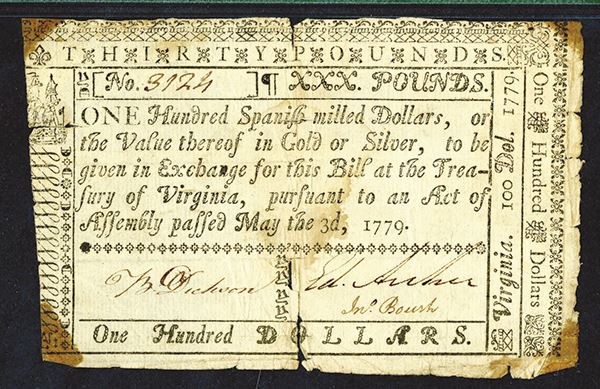 THIRTY POUNDS.
[No. 3124 ]¶ XXX. POUNDS.
ONE Hundred Spaniſh milled Dollars, or
the Value thereof in Gold or Silver, to be
given in Exchange for this Bill at the Trea-
ſury of Virginia, purſuant to an Act of
Aſſembly paſſed May the 3d, 1779.
W Dickson Ed. Archer
Jnº Boush
One Hundred DOLLARS.
Virginia. 100 Dol. 1779.
One Hundred Dollars